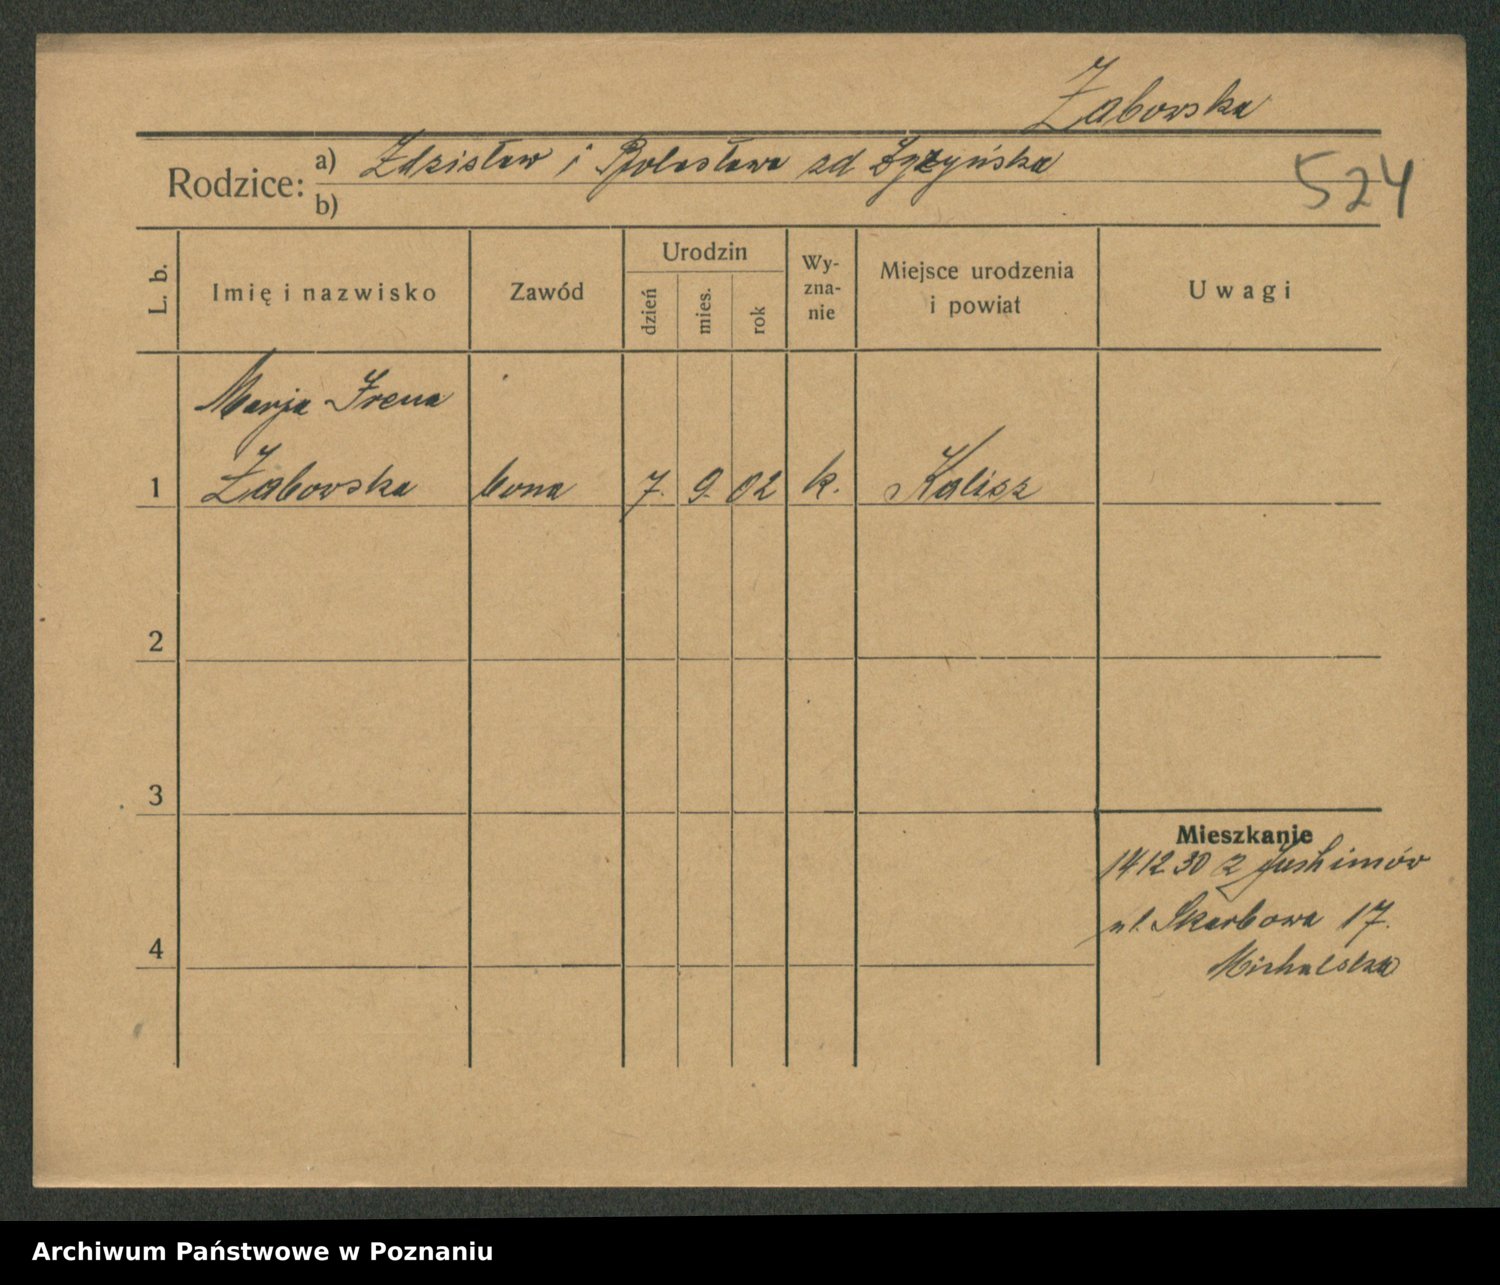 Żabowska
Rodzice: a) Zdzisław i Bolesława zd
b)
524
L. b.
Imię i nazwisko
Zawód
Urodzin
dzień
mies.
rok
Wy-
zna-
nie
Miejsce urodzenia
i powiat
Uwagi
Marja Irena
1 Żabowska bona 7. 9. 02 k. Kalisz
2
3
4
Mieszkanie
14 12 30 z
ul. Skarbowa 17.
Michalska
Archiwum Państwowe w Poznaniu